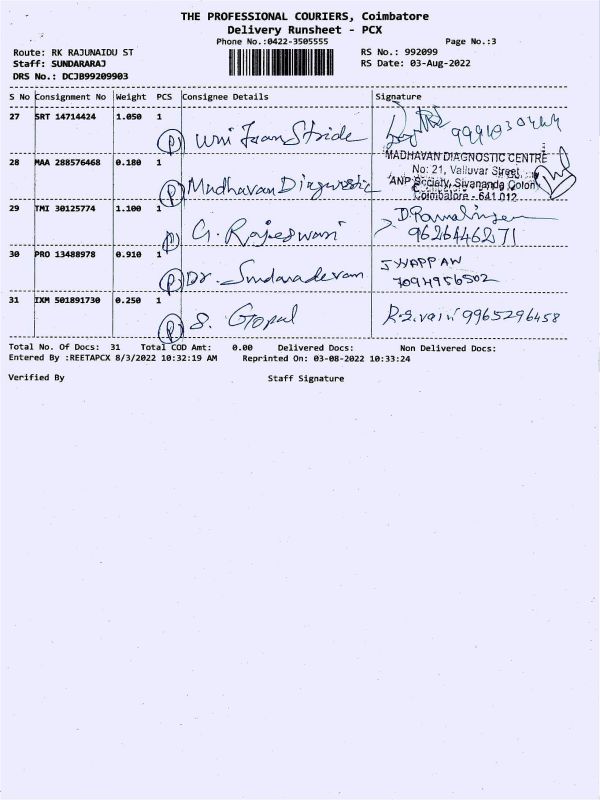 THE PROFESSIONAL COURIERS, Coimbatore
Delivery Runsheet - PCX
Phone No.:0422-3505555 Page No.:3
Route: RK RAJUNAIDU ST RS No.: 992099
Staff: SUNDARARAJ RS Date: 03-Aug-2022
DRS No.: DCJB99209903
S No Consignment No Weight PCS Consignee Details Signature
27 SRT 14714424 1.050 1
(P) Stride
28 MAA 288576468 0.180 1 MADHAVAN DIAGNOSTIC CENTRE
No: 21, Valluvar Street,
(P) Madhavan Diagnostic ANP Society, Sivananda Colony
Coimbatore - 641 012
29 TMI 30125774 1.100 1
(P) G. Rajeswari 9626446271
30 PRO 13488978 0.910 1
(P) Dr. Sundaradevan 7094956502
31 IXM 501891730 0.250 1
(P) S. Gopal 9965296458
Total No. Of Docs: 31 Total COD Amt: 0.00 Delivered Docs: Non Delivered Docs:
Entered By :REETAPCX 8/3/2022 10:32:19 AM Reprinted On: 03-08-2022 10:33:24
Verified By Staff Signature